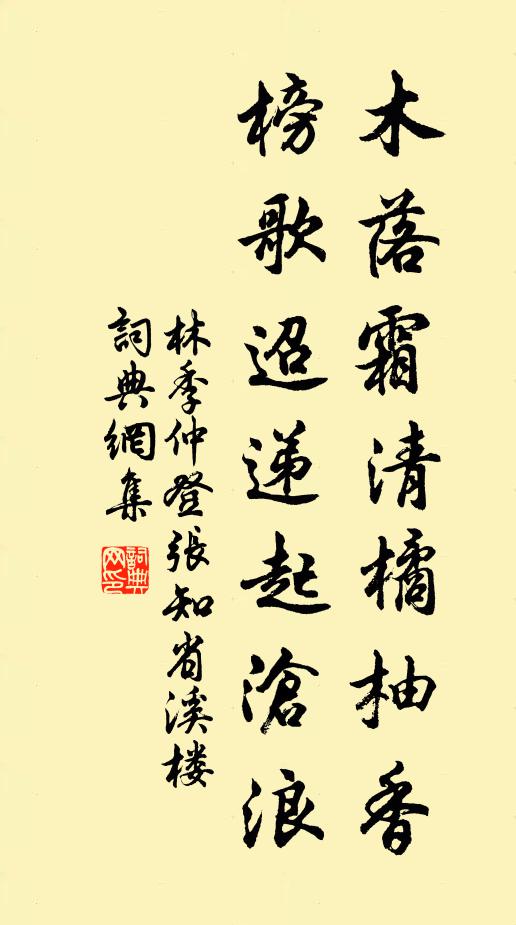 木落霜清橘柚香
榜歌迢递起滄浪
林季仲登張知省溪楼
詞典網集
詞典网印